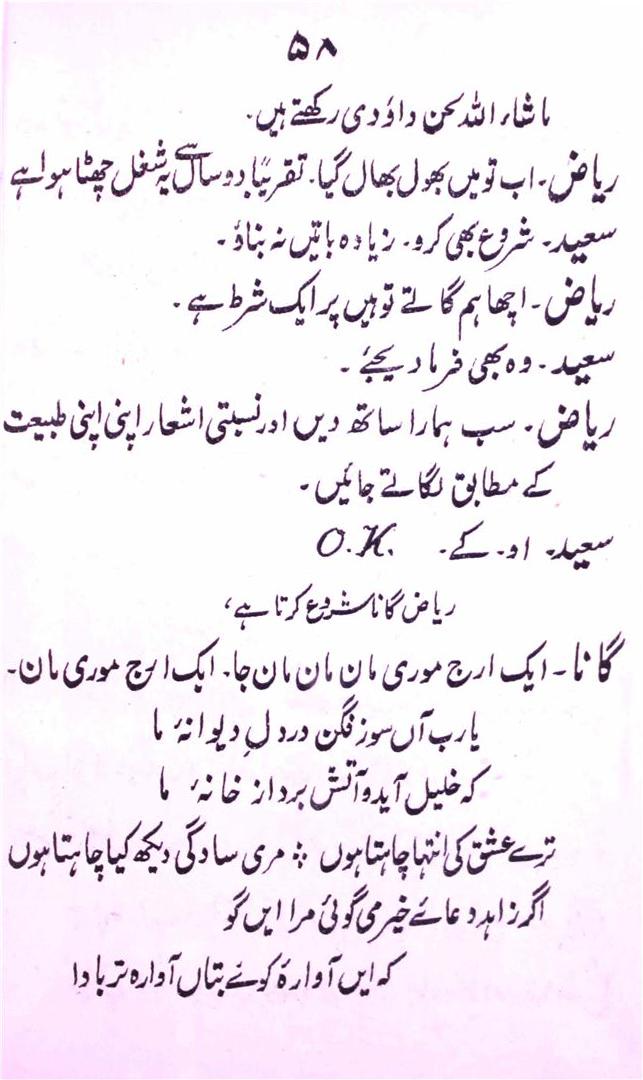 ۵۸
ماشاء اللہ لحن داؤدی رکھتے ہیں۔
ریاض۔ اب تو میں بھول بھال گیا۔ تقریبًا دو سال سے یہ شغل چھٹا ہوا ہے
سعید۔ شروع بھی کرو۔ زیادہ باتیں نہ بناؤ۔
ریاض۔ اچھا ہم گاتے تو ہیں پر ایک شرط ہے۔
سعید۔ وہ بھی فرما دیجئے۔
ریاض۔ سب ہمارا ساتھ دیں اور نسبتی اشعار اپنی اپنی طبیعت
کے مطابق لگاتے جائیں۔
سعید۔ او۔ کے۔ O.K.
ریاض گانا شروع کرتا ہے،
گانا۔ ایک ارج موری مان مان مان جا۔ ایک ارج موری مان۔
یارب آں سوز فگن در دلِ دیوانۂ ما
کہ خلیل آید و آتش برد از خانۂ ما
ترے عشق کی انتہا چاہتا ہوں ؞ مری سادگی دیکھ کیا چاہتا ہوں
اگر زاہد دعائے خیر می گوئی مرا ایں گو
کہ ایں آوارۂ کوئے بتاں آوارہ تر بادا